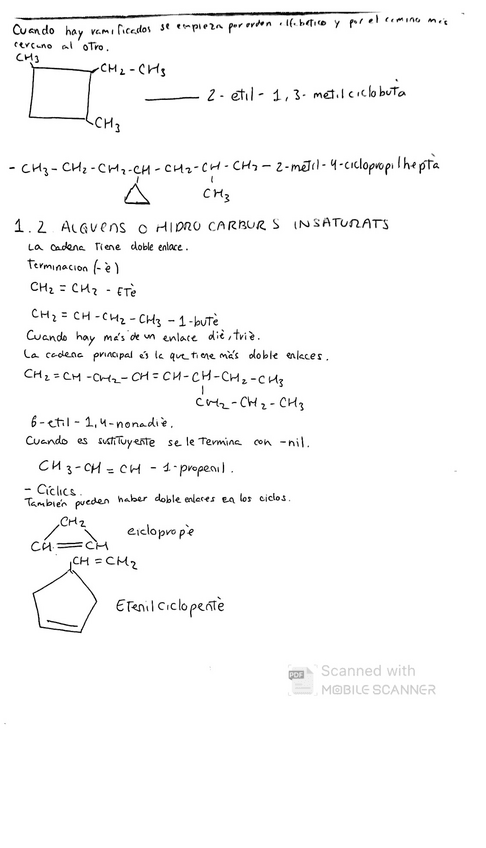 Cuando hay ramificados se empieza por orden alfabético y por el camino más
cercano al otro.
CH3
CH2-CH3
2-etil-1,3-metilciclobutà
CH3
- CH3-CH2-CH2-CH-CH2-CH-CH3-2-metil-4-ciclopropilheptà
CH3
1.2 ALQUENS O HIDROCARBURS INSATURATS
La cadena tiene doble enlace.
Terminacion (-è)
CH2=CH2 - ETè
CH2=CH-CH2-CH3-1-butè
Cuando hay más de un enlace diè, triè.
La cadena principal es la que tiene más doble enlaces.
CH2=CH-CH2-CH=CH-CH-CH2-CH3
CH2-CH2-CH3
6-etil-1,4-nonadiè.
Cuando es sustituyente se le termina con -nil.
CH3-CH=CH-1-propenil.
- Cíclics.
También pueden haber doble enlaces en los ciclos.
CH2
ciclopropè
CH=CH
CH=CH2
Etenilciclopentè
Scanned with
MOBILE SCANNER
PDF